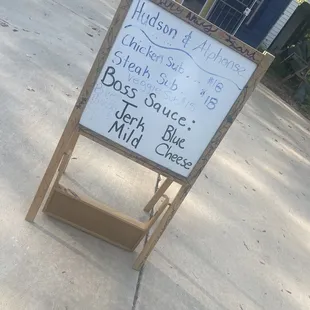 Hudson & Alphonse
Chicken Sub... $18
Steak Sub... $18
Veggie
Boss Sauce:
Jerk Blue
Mild Cheese